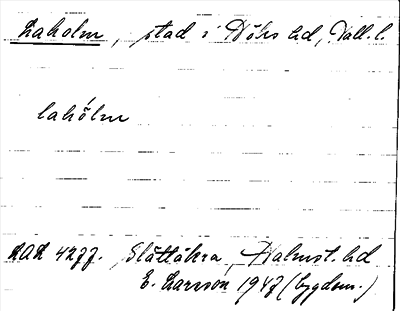 Laholm, stad i Höks hd, Hall. l.
lahólm
LAL 4277. Slättåkra, Halmst. hd
E. Larsson 1947 (bygdem.)